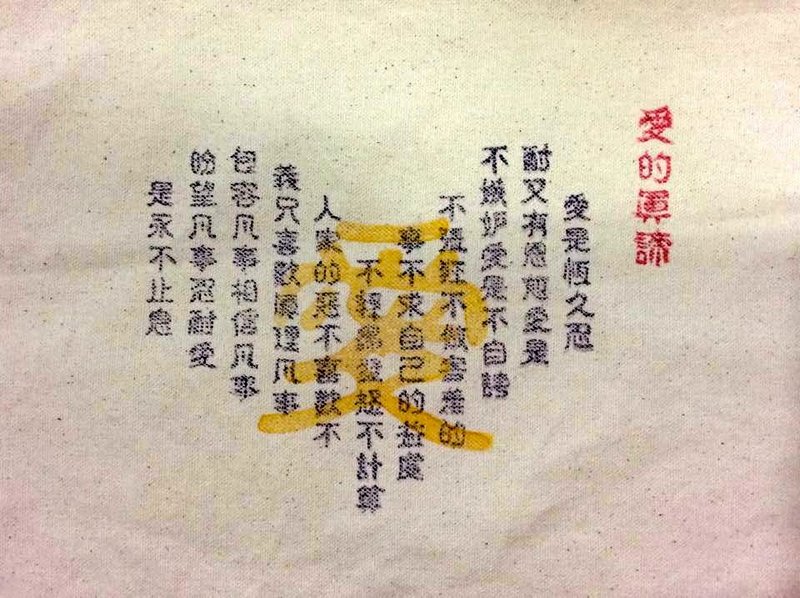 愛的真諦
愛是恆久忍
耐又有恩慈愛是
不嫉妒愛是不自誇
不張狂不做害羞的
事不求自己的益處
不輕易發怒不計算
人家的惡不喜歡不
義只喜歡真理凡事
包容凡事相信凡事
盼望凡事忍耐愛
是永不止息
愛